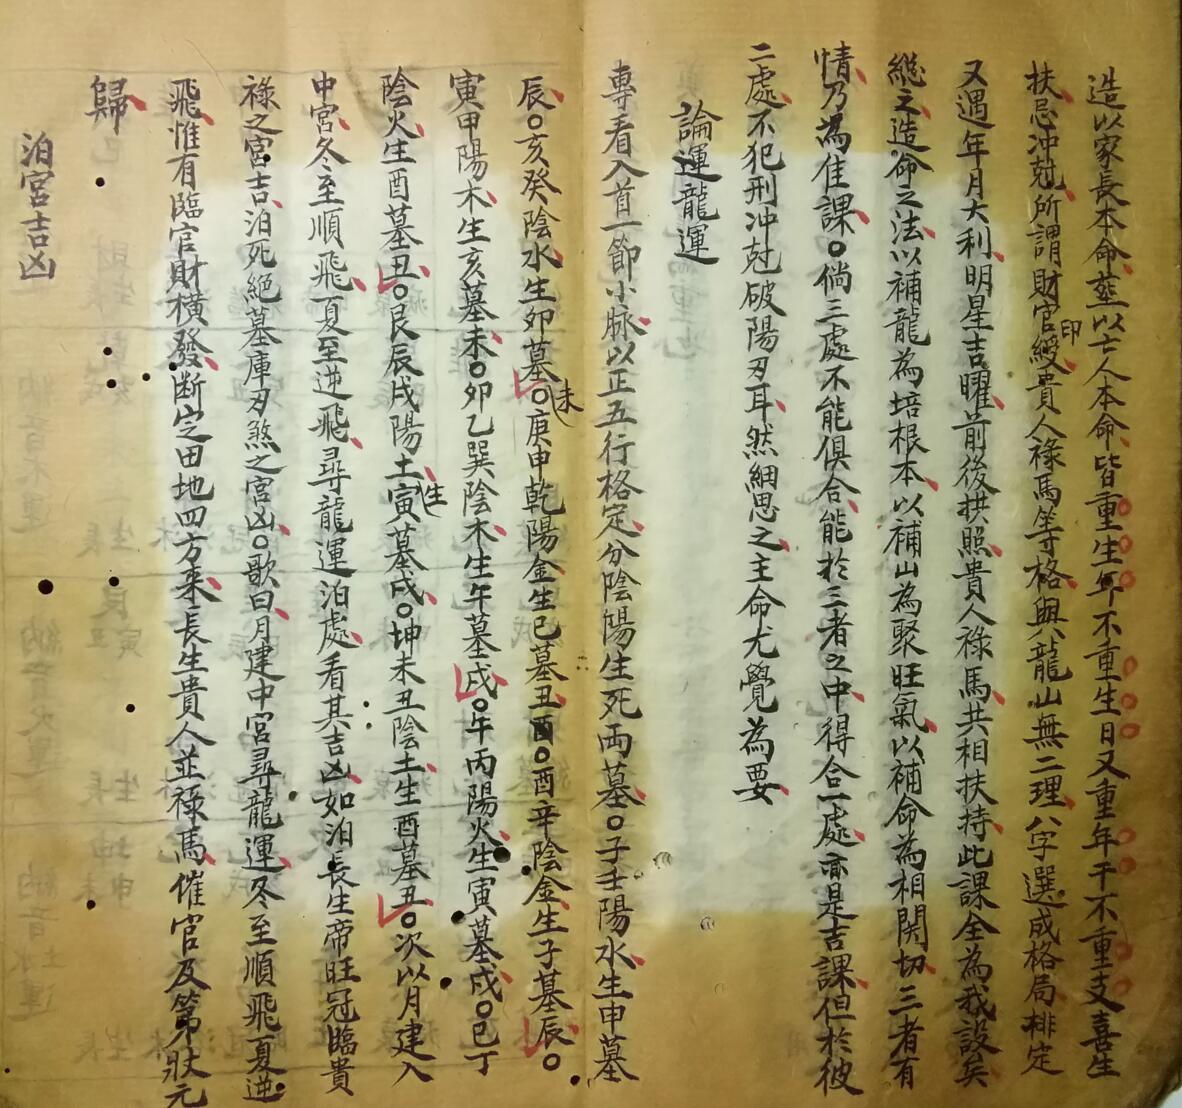 造以家長本命塟以亡人本命皆重生年不重生日又重年干不重支喜生
扶忌沖尅所謂財官印綬貴人祿馬等格與龍山無二理八字選成格局排定
又遇年月大利明星吉曜前後拱照貴人祿馬共相扶持此課全為我設矣
総之造命之法以補龍為培根本以補山為聚旺氣以補命為相関切三者有
情乃為佳課○倘三處不能俱合能於三者之中得合二處亦是吉課但於彼
二處不犯刑沖尅破陽刃耳然細思之主命尤覺為要
論運龍運
專看入首一節小脈以正五行格定分陰陽生死両墓○子壬陽水生申墓
辰○亥癸陰水生卯墓未○庚申乾陽金生巳墓丑○酉辛陰金生子墓辰○
寅甲陽木生亥墓未○卯乙巽陰木生午墓戌○午丙陽火生寅墓戌○巳丁
陰火生酉墓丑○艮辰戌陽土生寅墓戌○坤未丑陰土生酉墓丑○次以月建入
中宮冬至順飛夏至逆飛尋龍運泊處看其吉凶如泊長生帝旺冠臨貴
祿之宮吉泊死絕墓庫刃煞之宮凶○歌曰月建中宮尋龍運冬至順飛夏逆
飛惟有臨官財橫發断定田地四方来長生貴人並祿馬催官及第狀元
歸
泊宮吉凶